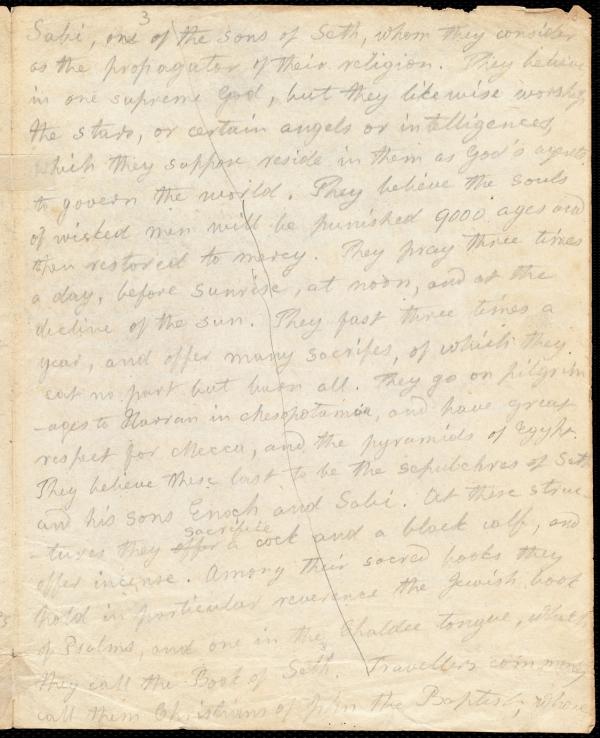 3
Sabi, one of the sons of Seth, whom they consider
as the propagator of their religion. They believe
in one supreme God, but they likewise worship
the stars, or certain angels or intelligences,
which they suppose reside in them as God's agents
to govern the world. They believe the souls
of wicked men will be punished 9000 ages and
then restored to mercy. They pray three times
a day, before sunrise, at noon, and at the
decline of the sun. They fast three times a
year, and offer many sacrifes, of which they
eat no part but burn all. They go on pilgrim
-ages to Harran in Mesopotamia, and have great
respect for Mecca, and the pyramids of Egypt.
They believe these last to be the sepulchres of Seth
and his sons Enoch and Sabi. At these struc-
-tures they offer sacrifice a cock and a black calf, and
offer incense. Among their sacred books they
hold in particular reverence the Jewish book
of Psalms, and one in the Chaldee tongue, which
they call the Book of Seth. Travellers commonly
call them Christians of John the Baptist; whose